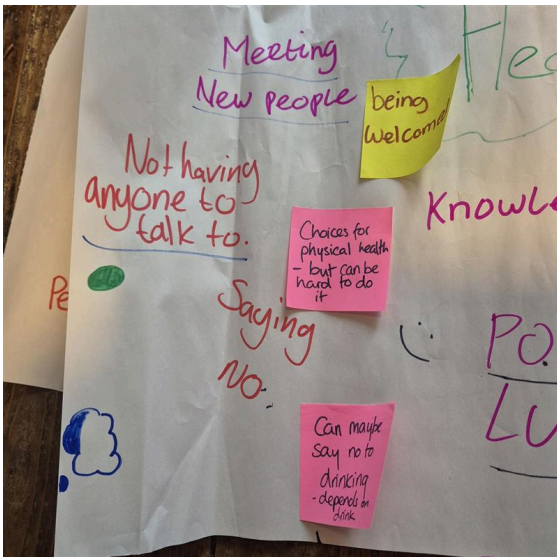 Meeting
New people
being
welcomed
Not having
anyone to
talk to.
Choices for
physical health
- but can be
hard to do
it
Saying
NO.
Can maybe
say no to
drinking
- depends on
drink